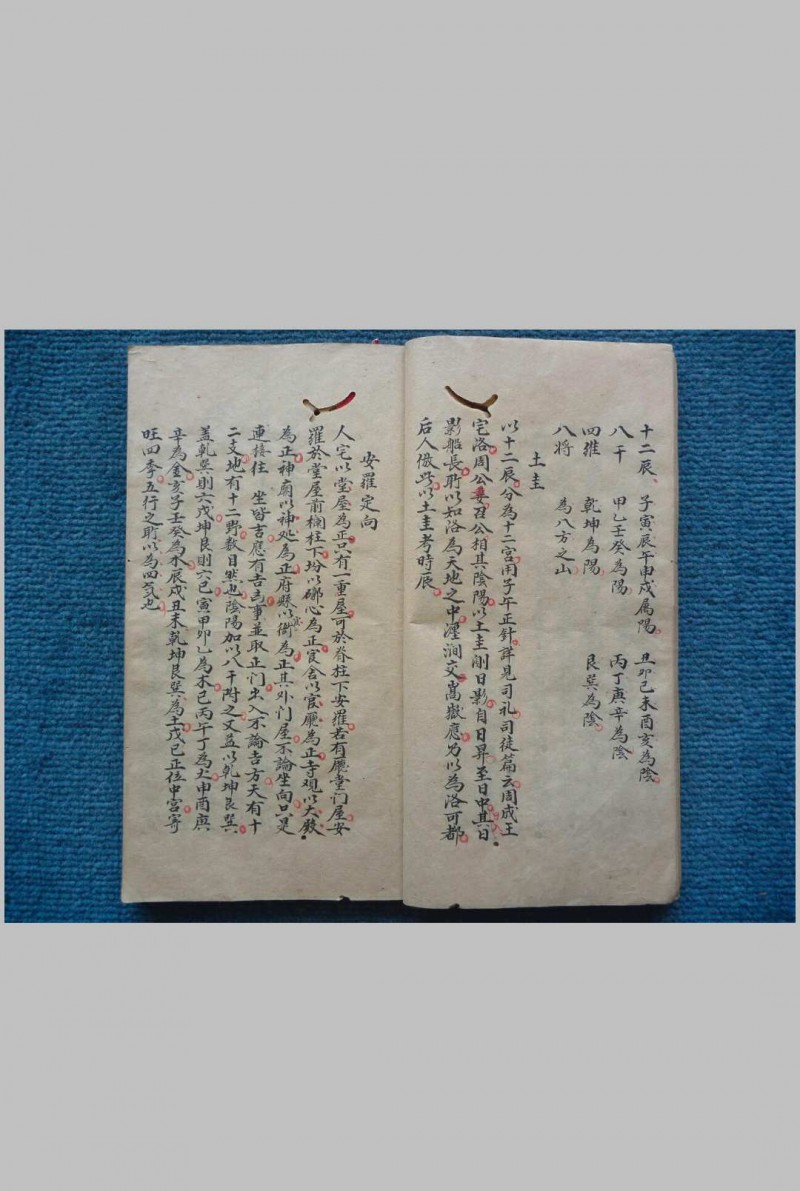 十二辰 子寅辰午申戌属陽 丑卯巳未酉亥為陰
八干 甲乙壬癸為陽 丙丁庚辛為陰
四維 乾坤為陽 艮巽為陰
八将 為八方之山
土圭
以十二辰分為十二宮用子午正針詳見司礼司徒篇云周成王
宅洛周公娄召公相其陰陽以土圭測日影自日昇至日中其日
影船長所以知洛為天地之中瀍澗交嵩嶽應为以為洛可都
后人倣此以土圭考時辰
安羅定向
人宅以堂屋為正只有一重屋可於脊柱下安羅若有廳堂门屋安
羅於堂屋前欄柱下坋以磉心為正官舍以官廳為正寺观以大殿
為正神廟以神处為正府縣以衙為正其外门屋不論坐向只是
連接住 坐皆吉應有吉凶事並取正门出入不論吉方天有十
二支地有十二野数目然也陰陽加以八干附之又益以乾坤艮巽
盖乾巽則六戊坤艮則六己寅甲卯乙為木巳丙午丁為火申酉庚
辛為金亥子壬癸為水辰戌丑未乾坤艮巽為土戊己正位中宮寄
旺四季五行之所以為四氣也